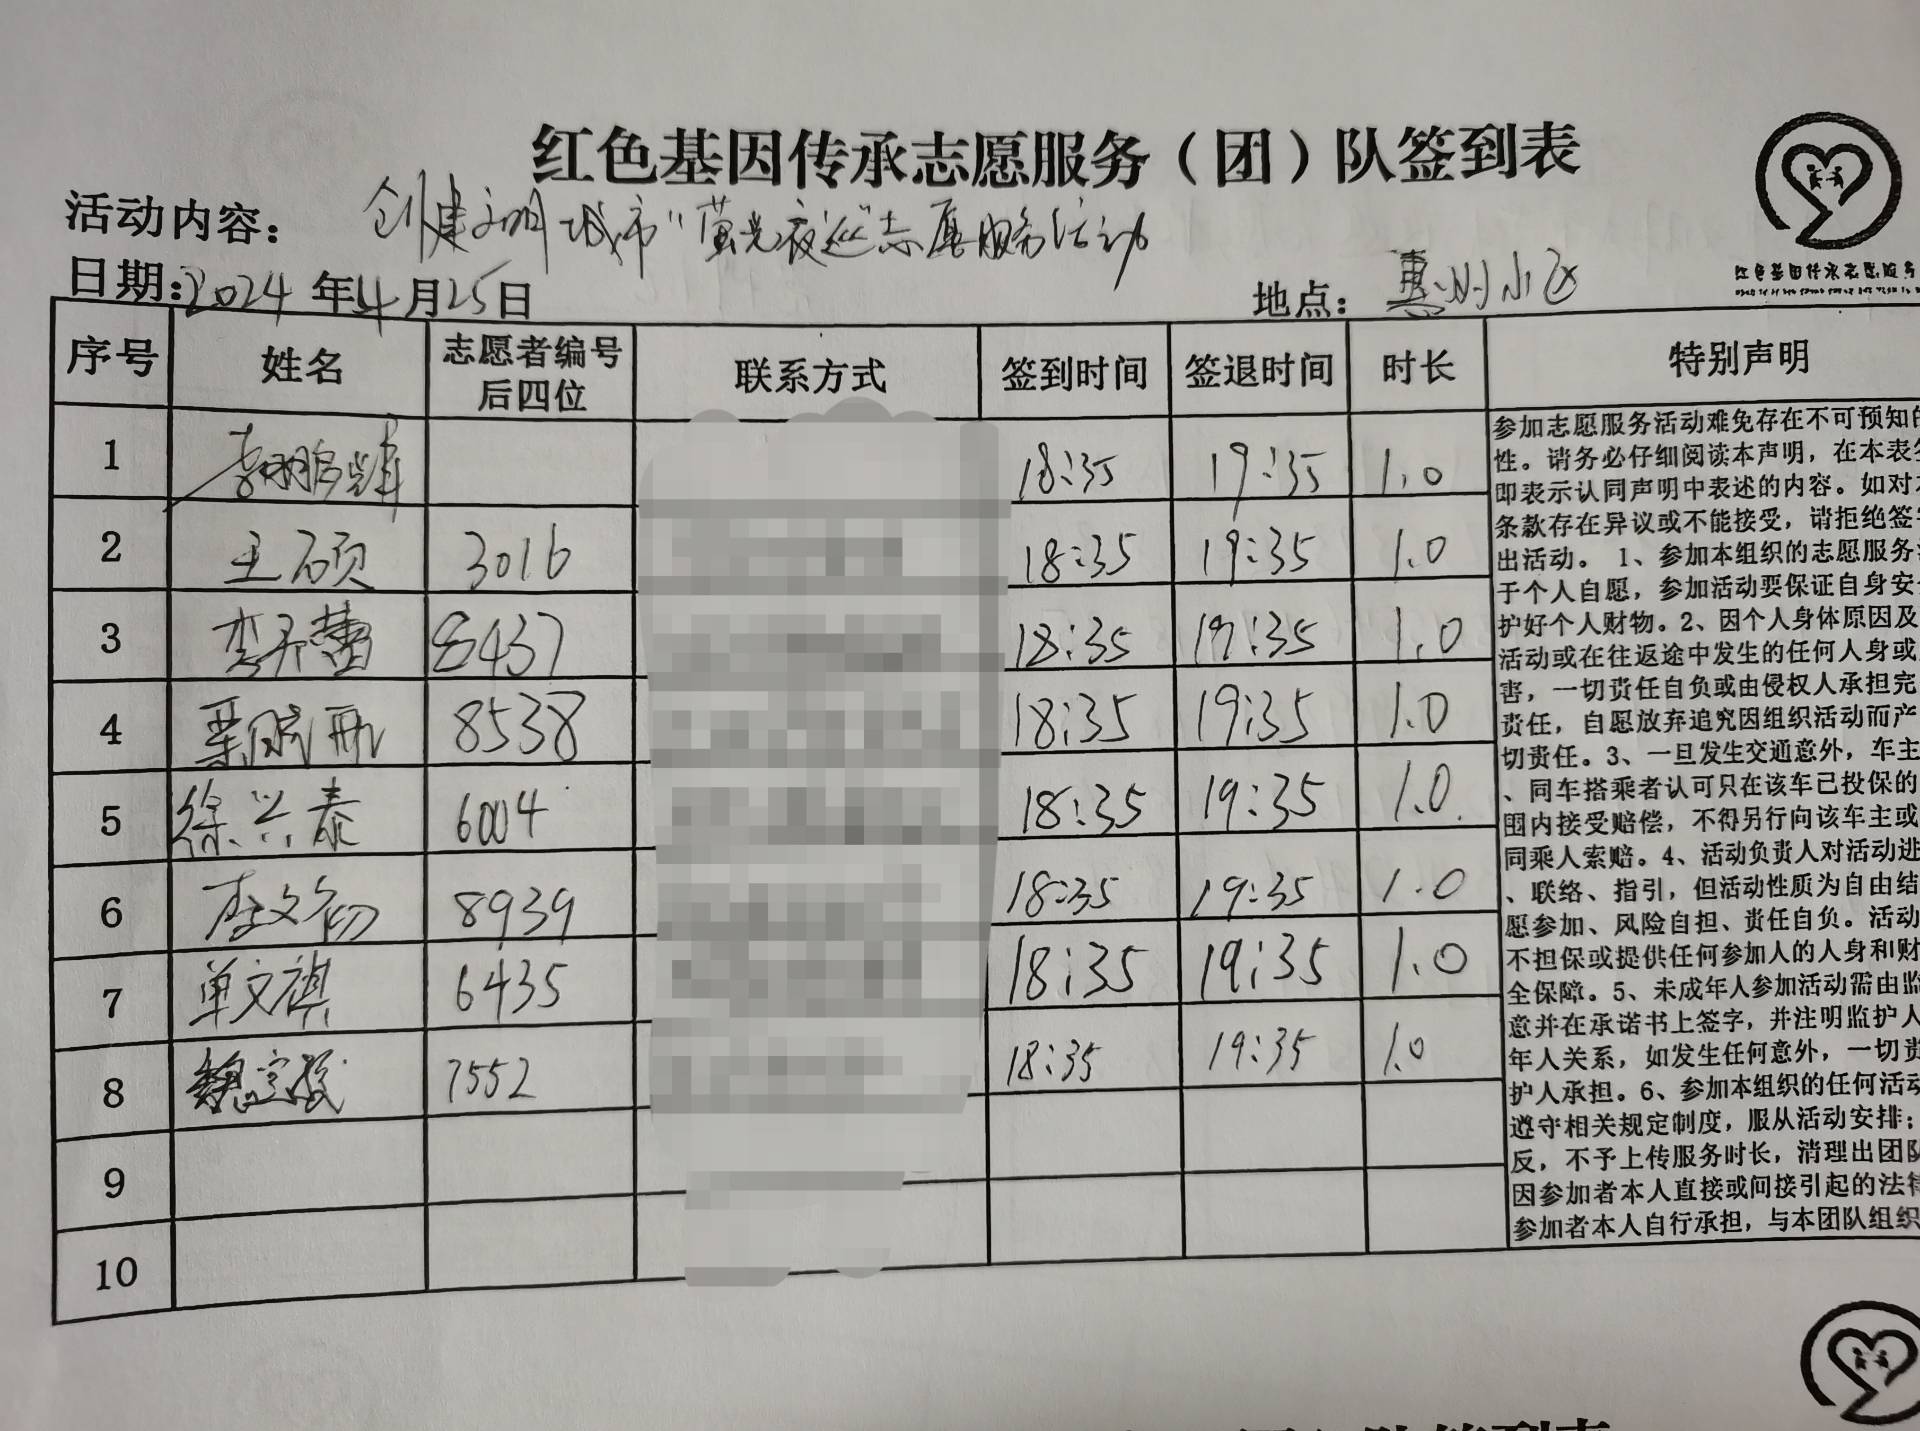 红色基因传承志愿服务（团）队签到表
活动内容：创建文明城市“萤光夜巡”志愿服务活动
日期：2024年4月25日 地点：惠州小区
红色基因传承志愿服务
序号 姓名 志愿者编号后四位 联系方式 签到时间 签退时间 时长 特别声明
1 李鹏辉 18:35 19:35 1.0
2 王硕 3016 18:35 19:35 1.0
3 8437 18:35 19:35 1.0
4 8538 18:35 19:35 1.0
5 徐兴泰 6004 18:35 19:35 1.0
6 8939 18:35 19:35 1.0
7 单文祺 6435 18:35 19:35 1.0
8 7552 18:35 19:35 1.0
9
10
参加志愿服务活动难免存在不可预知的
性。请务必仔细阅读本声明，在本表签
即表示认同声明中表述的内容。如对
条款存在异议或不能接受，请拒绝签
出活动。 1、参加本组织的志愿服务
于个人自愿，参加活动要保证自身安
护好个人财物。2、因个人身体原因及
活动或在往返途中发生的任何人身或
害，一切责任自负或由侵权人承担完
责任，自愿放弃追究因组织活动而产
切责任。3、一旦发生交通意外，车主
、同车搭乘者认可只在该车已投保的
围内接受赔偿，不得另行向该车主或
同乘人索赔。4、活动负责人对活动进
、联络、指引，但活动性质为自由结
愿参加、风险自担、责任自负。活动
不担保或提供任何参加人的人身和财
全保障。5、未成年人参加活动需由监
意并在承诺书上签字，并注明监护人
年人关系，如发生任何意外，一切责
护人承担。6、参加本组织的任何活动
遵守相关规定制度，服从活动安排；
反，不予上传服务时长，清理出团队
因参加者本人直接或间接引起的法律
参加者本人自行承担，与本团队组织